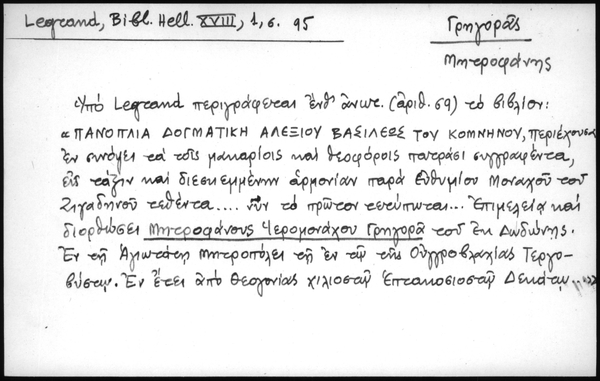 Legrand, Bibl. Hell. XVIII, 1, σ. 95
Γρηγορᾶς
Μητροφάνης
Ὑπό Legrand περιγράφεται ἐνθ' ἄνωτ. (ἀριθ. 69) τό βιβλίον:
"ΠΑΝΟΠΛΙΑ ΔΟΓΜΑΤΙΚΗ ΑΛΕΞΙΟΥ ΒΑΣΙΛΕΩΣ ΤΟΥ ΚΟΜΝΗΝΟΥ, περιέχουσα
ἐν συνόψει τά τοῖς μακαρίοις καί θεοφόροις πατράσι συγγραφέντα,
εἰς τάξιν καί διεσκεμμένην ἁρμονίαν παρά Εὐθυμίου Μοναχοῦ τοῦ
Ζιγαδηνοῦ τεθέντα.... νῦν τό πρῶτον τετύπωται... Ἐπιμελείᾳ καί
διορθώσει Μητροφάνους Ἱερομονάχου Γρηγορᾶ τοῦ ἐκ Δωδώνης.
Ἐν τῇ Ἁγιωτάτῃ Μητροπόλει τῇ ἐν τῷ τῆς Οὑγγροβλαχίας Τεργο-
βύστῳ. Ἐν ἔτει ἀπό θεογονίας χιλιοστῷ ἑπτακοσιοστῷ Δεκάτῳ...